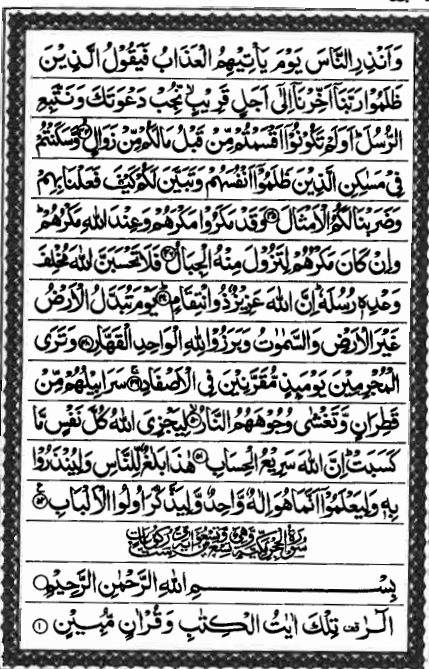 وَاَنۡذِرِ النَّاسَ يَوۡمَ يَاۡتِيۡهِمُ الۡعَذَابُ فَيَقُوۡلُ الَّذِيۡنَ
ظَلَمُوۡا رَبَّنَاۤ اَخِّرۡنَاۤ اِلٰٓى اَجَلٍ قَرِيۡبٍۙ نُّجِبۡ دَعۡوَتَكَ وَنَتَّبِعِ
الرُّسُلَ‌ؕ اَوَلَمۡ تَكُوۡنُوۡۤا اَقۡسَمۡتُمۡ مِّنۡ قَبۡلُ مَالَكُمۡ مِّنۡ زَوَالٍۙ‏ ﴿۴۴﴾ وَّسَكَنۡتُمۡ
فِىۡ مَسٰكِنِ الَّذِيۡنَ ظَلَمُوۡۤا اَنۡفُسَهُمۡ وَتَبَيَّنَ لَكُمۡ كَيۡفَ فَعَلۡنَا بِهِمۡ
وَضَرَبۡنَا لَكُمُ الۡاَمۡثَالَ ﴿۴۵﴾ وَقَدۡ مَكَرُوۡا مَكۡرَهُمۡ وَعِنۡدَ اللّٰهِ مَكۡرُهُمۡؕ
وَاِنۡ كَانَ مَكۡرُهُمۡ لِتَزُوۡلَ مِنۡهُ الۡجِبَالُ ﴿۴۶﴾ فَلَا تَحۡسَبَنَّ اللّٰهَ مُخۡلِفَ
وَعۡدِهٖ رُسُلَهٗؕ اِنَّ اللّٰهَ عَزِيۡزٌ ذُوۡ انْتِقَامٍؕ ﴿۴۷﴾ يَوۡمَ تُبَدَّلُ الۡاَرۡضُ
غَيۡرَ الۡاَرۡضِ وَالسَّمٰوٰتُ وَبَرَزُوۡا لِلّٰهِ الۡوَاحِدِ الۡقَهَّارِ ﴿۴۸﴾ وَتَرَى
الۡمُجۡرِمِيۡنَ يَوۡمَٮِٕذٍ مُّقَرَّنِيۡنَ فِى الۡاَصۡفَادِۚ ﴿۴۹﴾ سَرَابِيۡلُهُمۡ مِّنۡ
قَطِرَانٍ وَّتَغۡشٰى وُجُوۡهَهُمُ النَّارُۙ ﴿۵۰﴾ لِيَجۡزِىَ اللّٰهُ كُلَّ نَفۡسٍ مَّا
كَسَبَتۡؕ اِنَّ اللّٰهَ سَرِيۡعُ الۡحِسَابِ ﴿۵۱﴾ هٰذَا بَلٰغٌ لِّلنَّاسِ وَلِيُنۡذَرُوۡا
بِهٖ وَلِيَـعۡلَمُوۡۤا اَنَّمَا هُوَ اِلٰـهٌ وَّاحِدٌ وَّلِيَذَّكَّرَ اُولُوا الۡاَلۡبَابِ ﴿۵۲﴾
سُوۡرَةُ الۡحِجۡرِ مَكِّيَّةٌ وَّهِىَ تِسۡعٌ وَّتِسۡعُوۡنَ اٰيَةً
بِسۡمِ اللّٰهِ الرَّحۡمٰنِ الرَّحِيۡمِ
الٓرٰ تِلۡكَ اٰيٰتُ الۡكِتٰبِ وَقُرۡاٰنٍ مُّبِيۡنٍ ﴿۱﴾